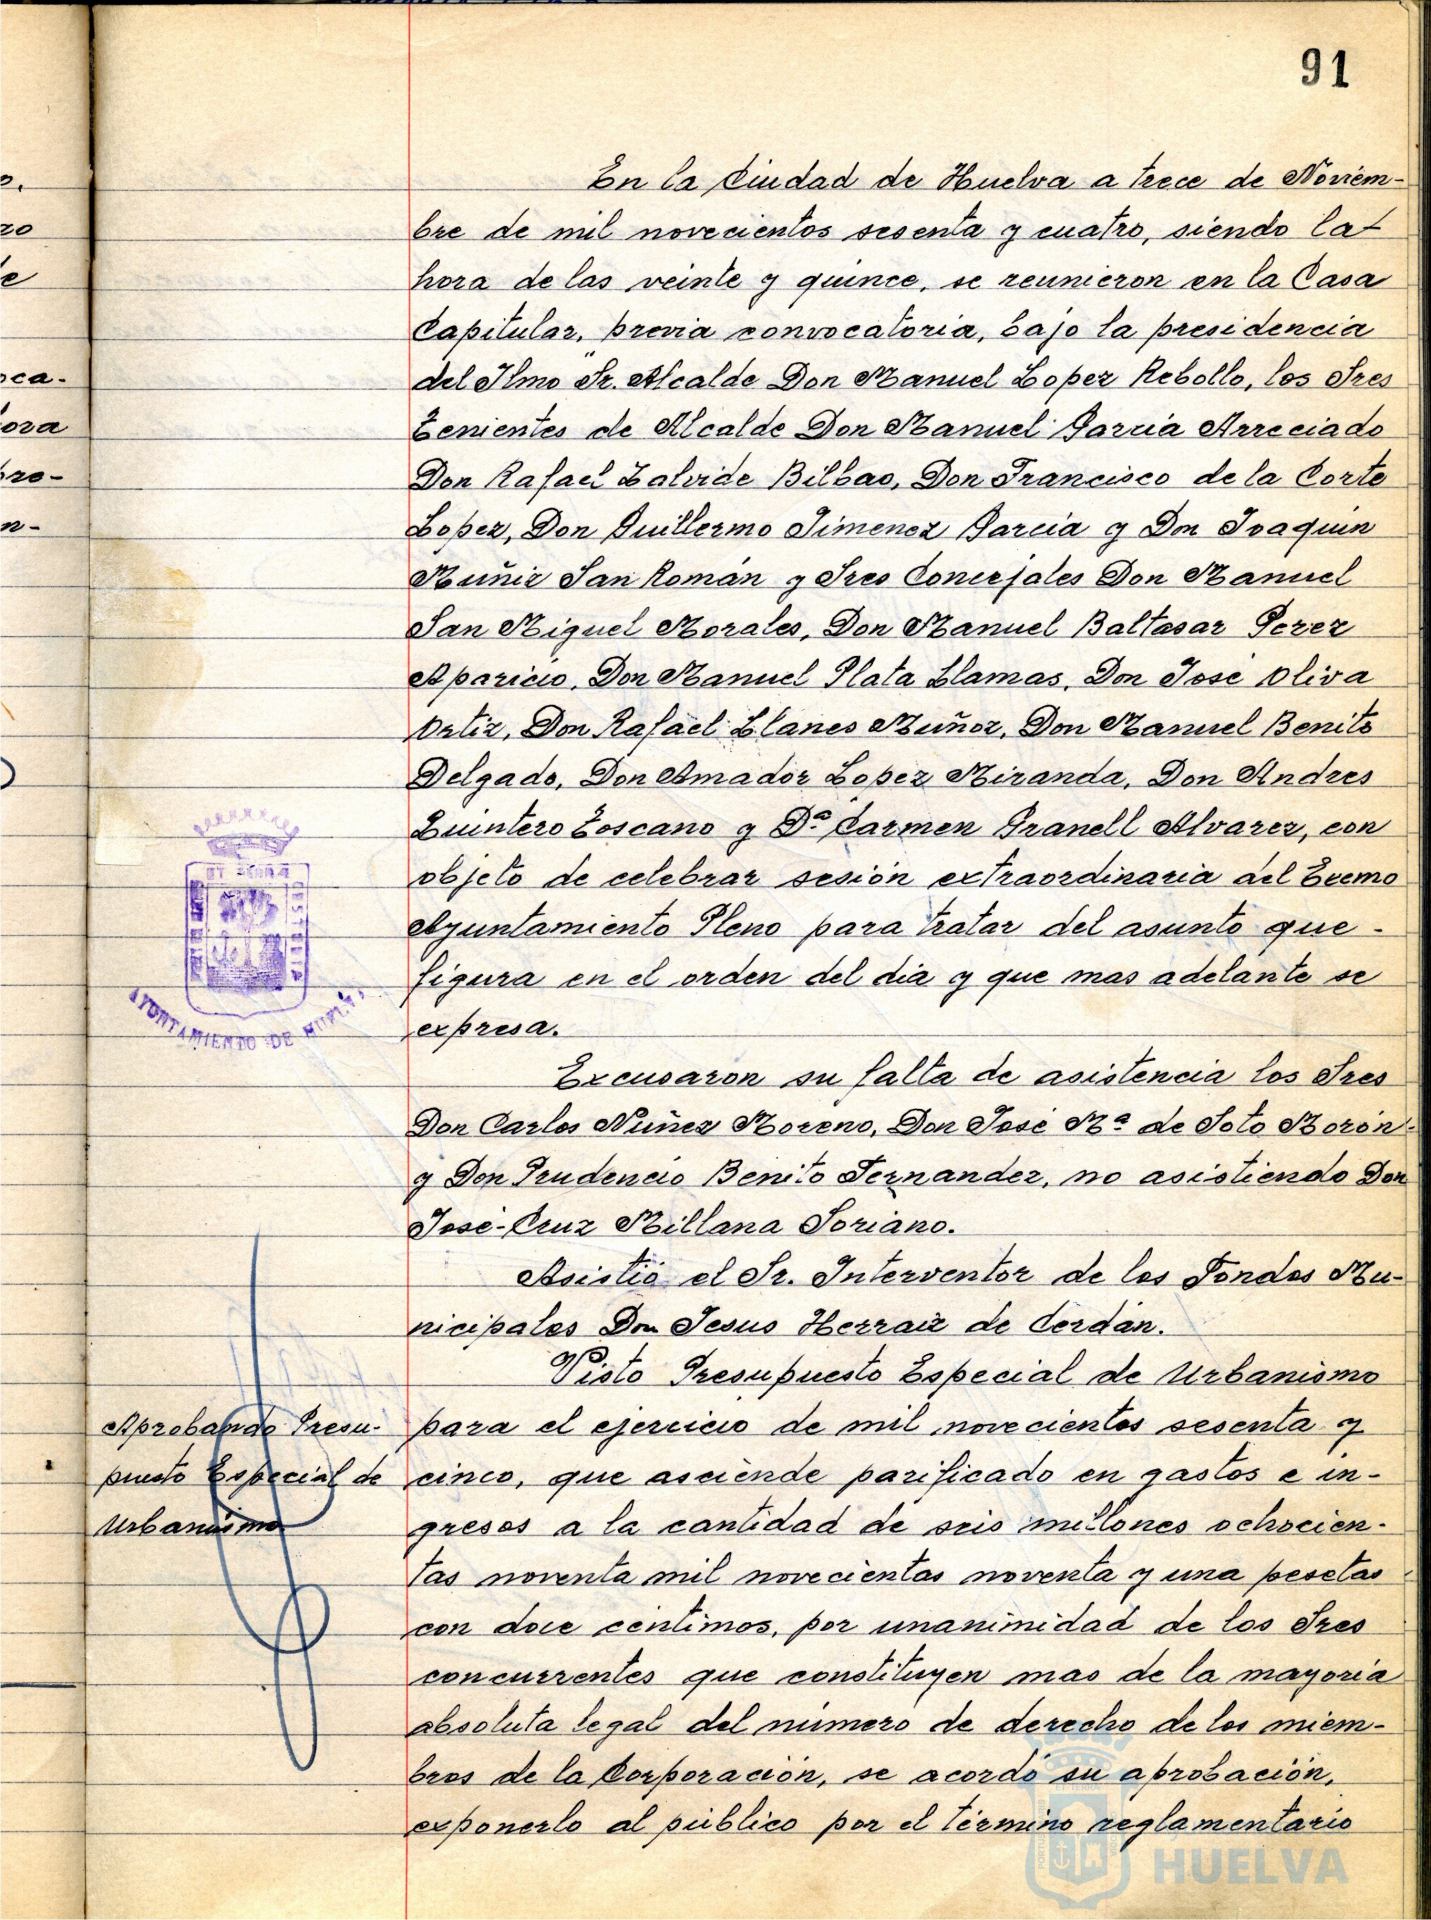 91
En la Ciudad de Huelva a trece de Noviem-
bre de mil novecientos sesenta y cuatro, siendo la
hora de las veinte y quince, se reunieron en la Casa
Capitular, previa convocatoria, bajo la presidencia
del Ilmo Sr. Alcalde Don Manuel Lopez Rebollo, los Sres
Tenientes de Alcalde Don Manuel Garcia Arreciado
Don Rafael Zalvide Bilbao, Don Francisco de la Corte
Lopez, Don Guillermo Jimenez Garcia y Don Joaquin
Muñiz San Román y Sres Concejales Don Manuel
San Miguel Morales, Don Manuel Baltasar Perez
Aparicio, Don Manuel Plata Llamas, Don José Oliva
Ortiz, Don Rafael Llanes Muñoz, Don Manuel Benito
Delgado, Don Amador Lopez Miranda, Don Andres
Quintero Toscano y Dª Carmen Granell Alvarez, con
objeto de celebrar sesión extraordinaria del Excmo
Ayuntamiento Pleno para tratar del asunto que -
figura en el orden del dia y que mas adelante se
expresa.
AYUNTAMIENTO DE HUELVA
Excusaron su falta de asistencia los Sres
Don Carlos Nuñez Moreno, Don José Mª de Soto Morón
y Don Prudencio Benito Fernandez, no asistiendo Don
José-Cruz Millana Soriano.
Asistió el Sr. Interventor de los Fondos Mu-
nicipales Don Jesus Herraiz de Cerdán.
Visto Presupuesto Especial de Urbanismo
para el ejercicio de mil novecientos sesenta y
cinco, que asciende parificado en gastos e in-
gresos a la cantidad de seis millones ochocien-
tas noventa mil novecientas noventa y una pesetas
con doce centimos, por unanimidad de los Sres
concurrentes que constituyen mas de la mayoria
absoluta legal del número de derecho de los miem-
bros de la Corporación, se acordó su aprobación,
exponerlo al público por el término reglamentario
Aprobando Presu-
puesto Especial de
Urbanismo
HUELVA